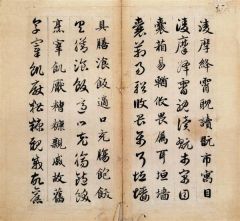 凌摩絳霄耽讀翫市寓目
凌摩絳霄耽讀翫市寓目
囊箱易輶攸畏屬耳垣墻
囊箱易輶攸畏屬耳垣墻
具膳飡飯適口充腸飽飫
具膳飡飯適口充腸飽飫
烹宰飢厭糟糠親戚故舊
烹宰飢厭糟糠親戚故舊